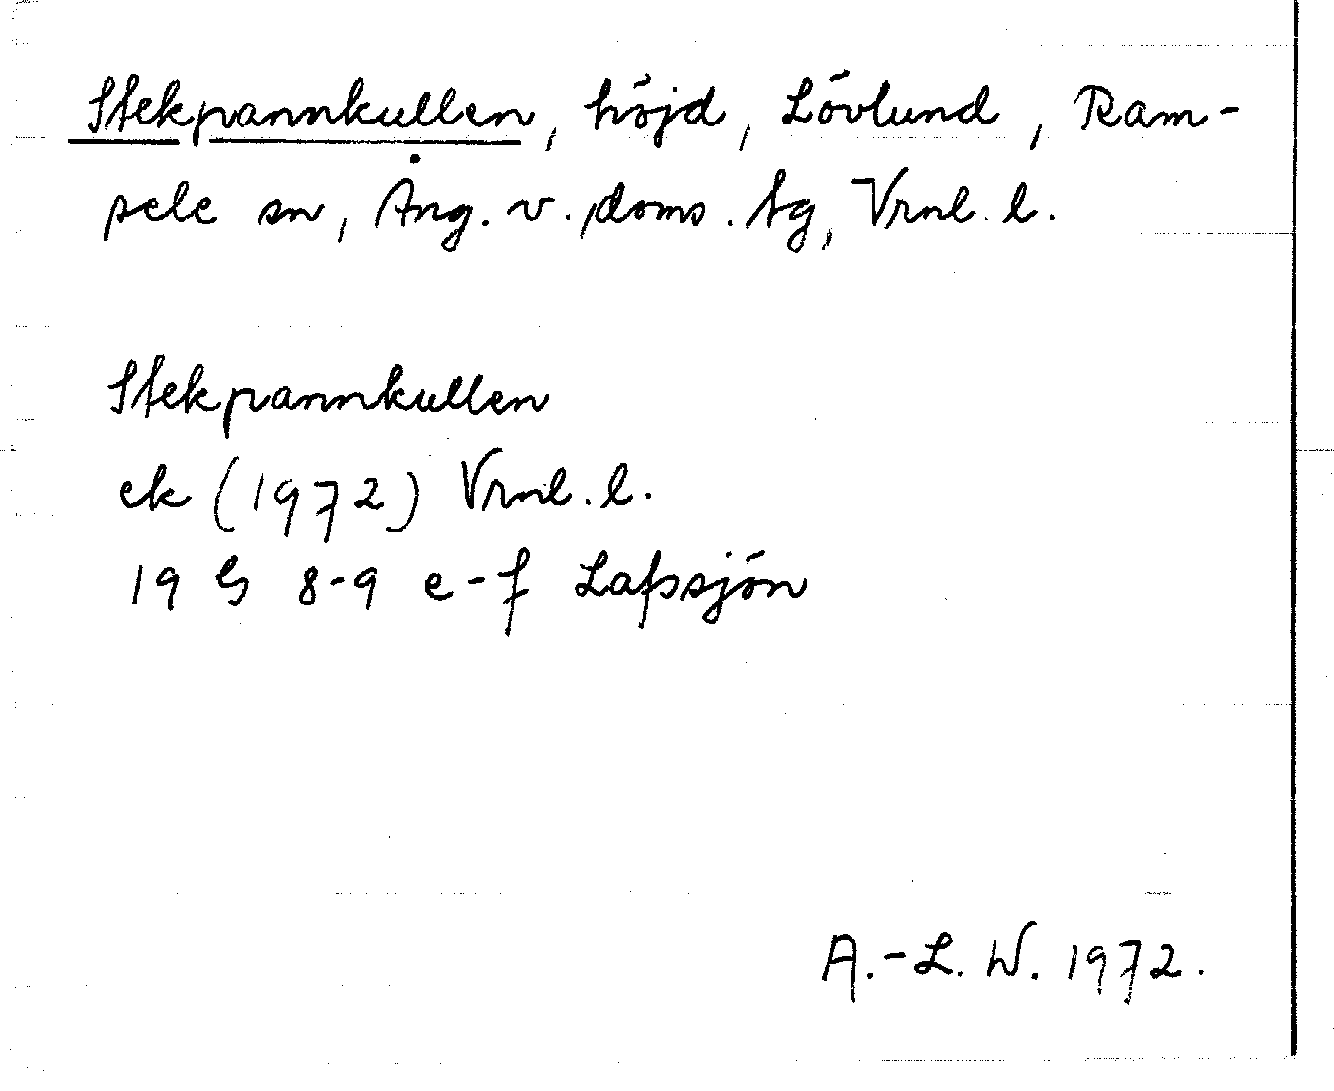 Stekpannkullen, höjd, Lövlund, Ram-
sele sn, Ång. v. doms. tg, Vrnl. l.
Stekpannkullen
ek (1972) Vrnl. l.
19 G 8-9 e-f Lafssjön
A.-L. W. 1972.